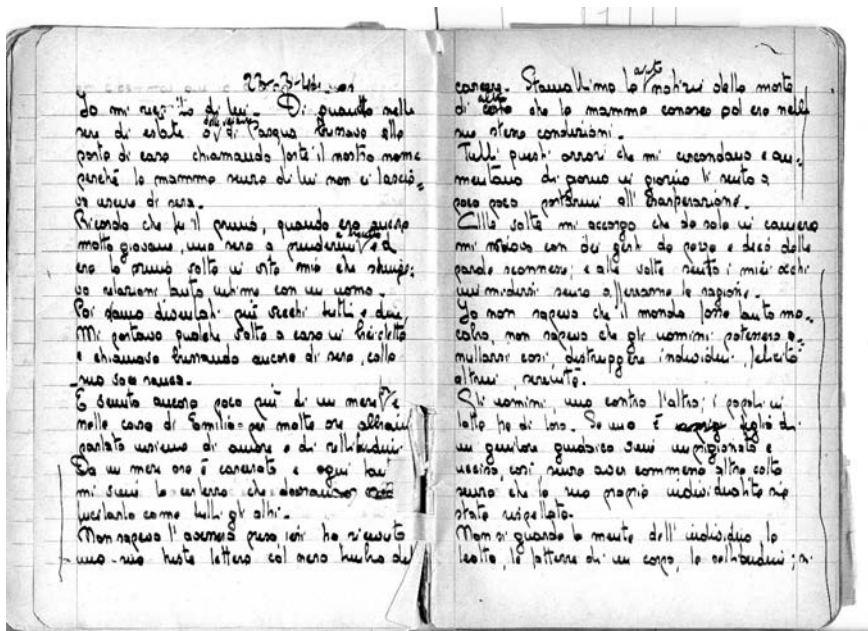 23-3-44
Io mi ricordo di lui. Di quando nelle
sere di estate o di Pasqua bussava alla
porta di casa chiamando forte il nostro nome
perché la mamma senza di lui non ci lascia=
va uscire di sera.
Ricordo che fu il primo, quando ero ancora
molto giovane, una sera a prendermi e
era la prima volta in vita mia che
vo relazioni tanto intime con un uomo.
Poi siamo diventati più vecchi tutti e due,
Mi portava qualche volta a casa in bicicletta
e chiamava bussando ancora di sera, colla
sua voce rauca.
È venuto ancora poco più di un mese fa e
nella casa di Emilio per molte ore abbiamo
parlato insieme di amore e di
Da un mese ora è carcerato e ogni tanto
mi viene lo che dovranno
fucilarlo come tutti gli altri.
Non sapevo l'avessero preso ieri ho ricevuto
una sua triste lettera col nero timbro del
carcere. Stamattina ho avuto notizia della morte
di altro che la mamma conosceva ed era nelle
sue stesse condizioni.
Tutti questi orrori che mi circondano e au=
mentano di giorno in giorno li sento a
poco a poco portarmi all'esasperazione.
Alle volte mi accorgo che da sola in camera
mi con dei gesti da pazza e dico delle
parole sconnesse; e alle volte sento i miei occhi
inumidirsi senza afferrarne la ragione.
Io non sapevo che il mondo fosse tanto ma=
cabro, non sapevo che gli uomini potessero a=
nullarsi così, distruggere individui, felicità
altrui, serenità.
Gli uomini, uno contro l'altro; i popoli in
lotta fra di loro. Se uno è figlio di
un genitore giudaico viene imprigionato e
ucciso, così senza aver commesso altra colpa
senza che la sua propria individualità sia
stata rispettata.
Non si guarda la mente dell'individuo, la
lealtà, le fattezze di un corpo, la ; si